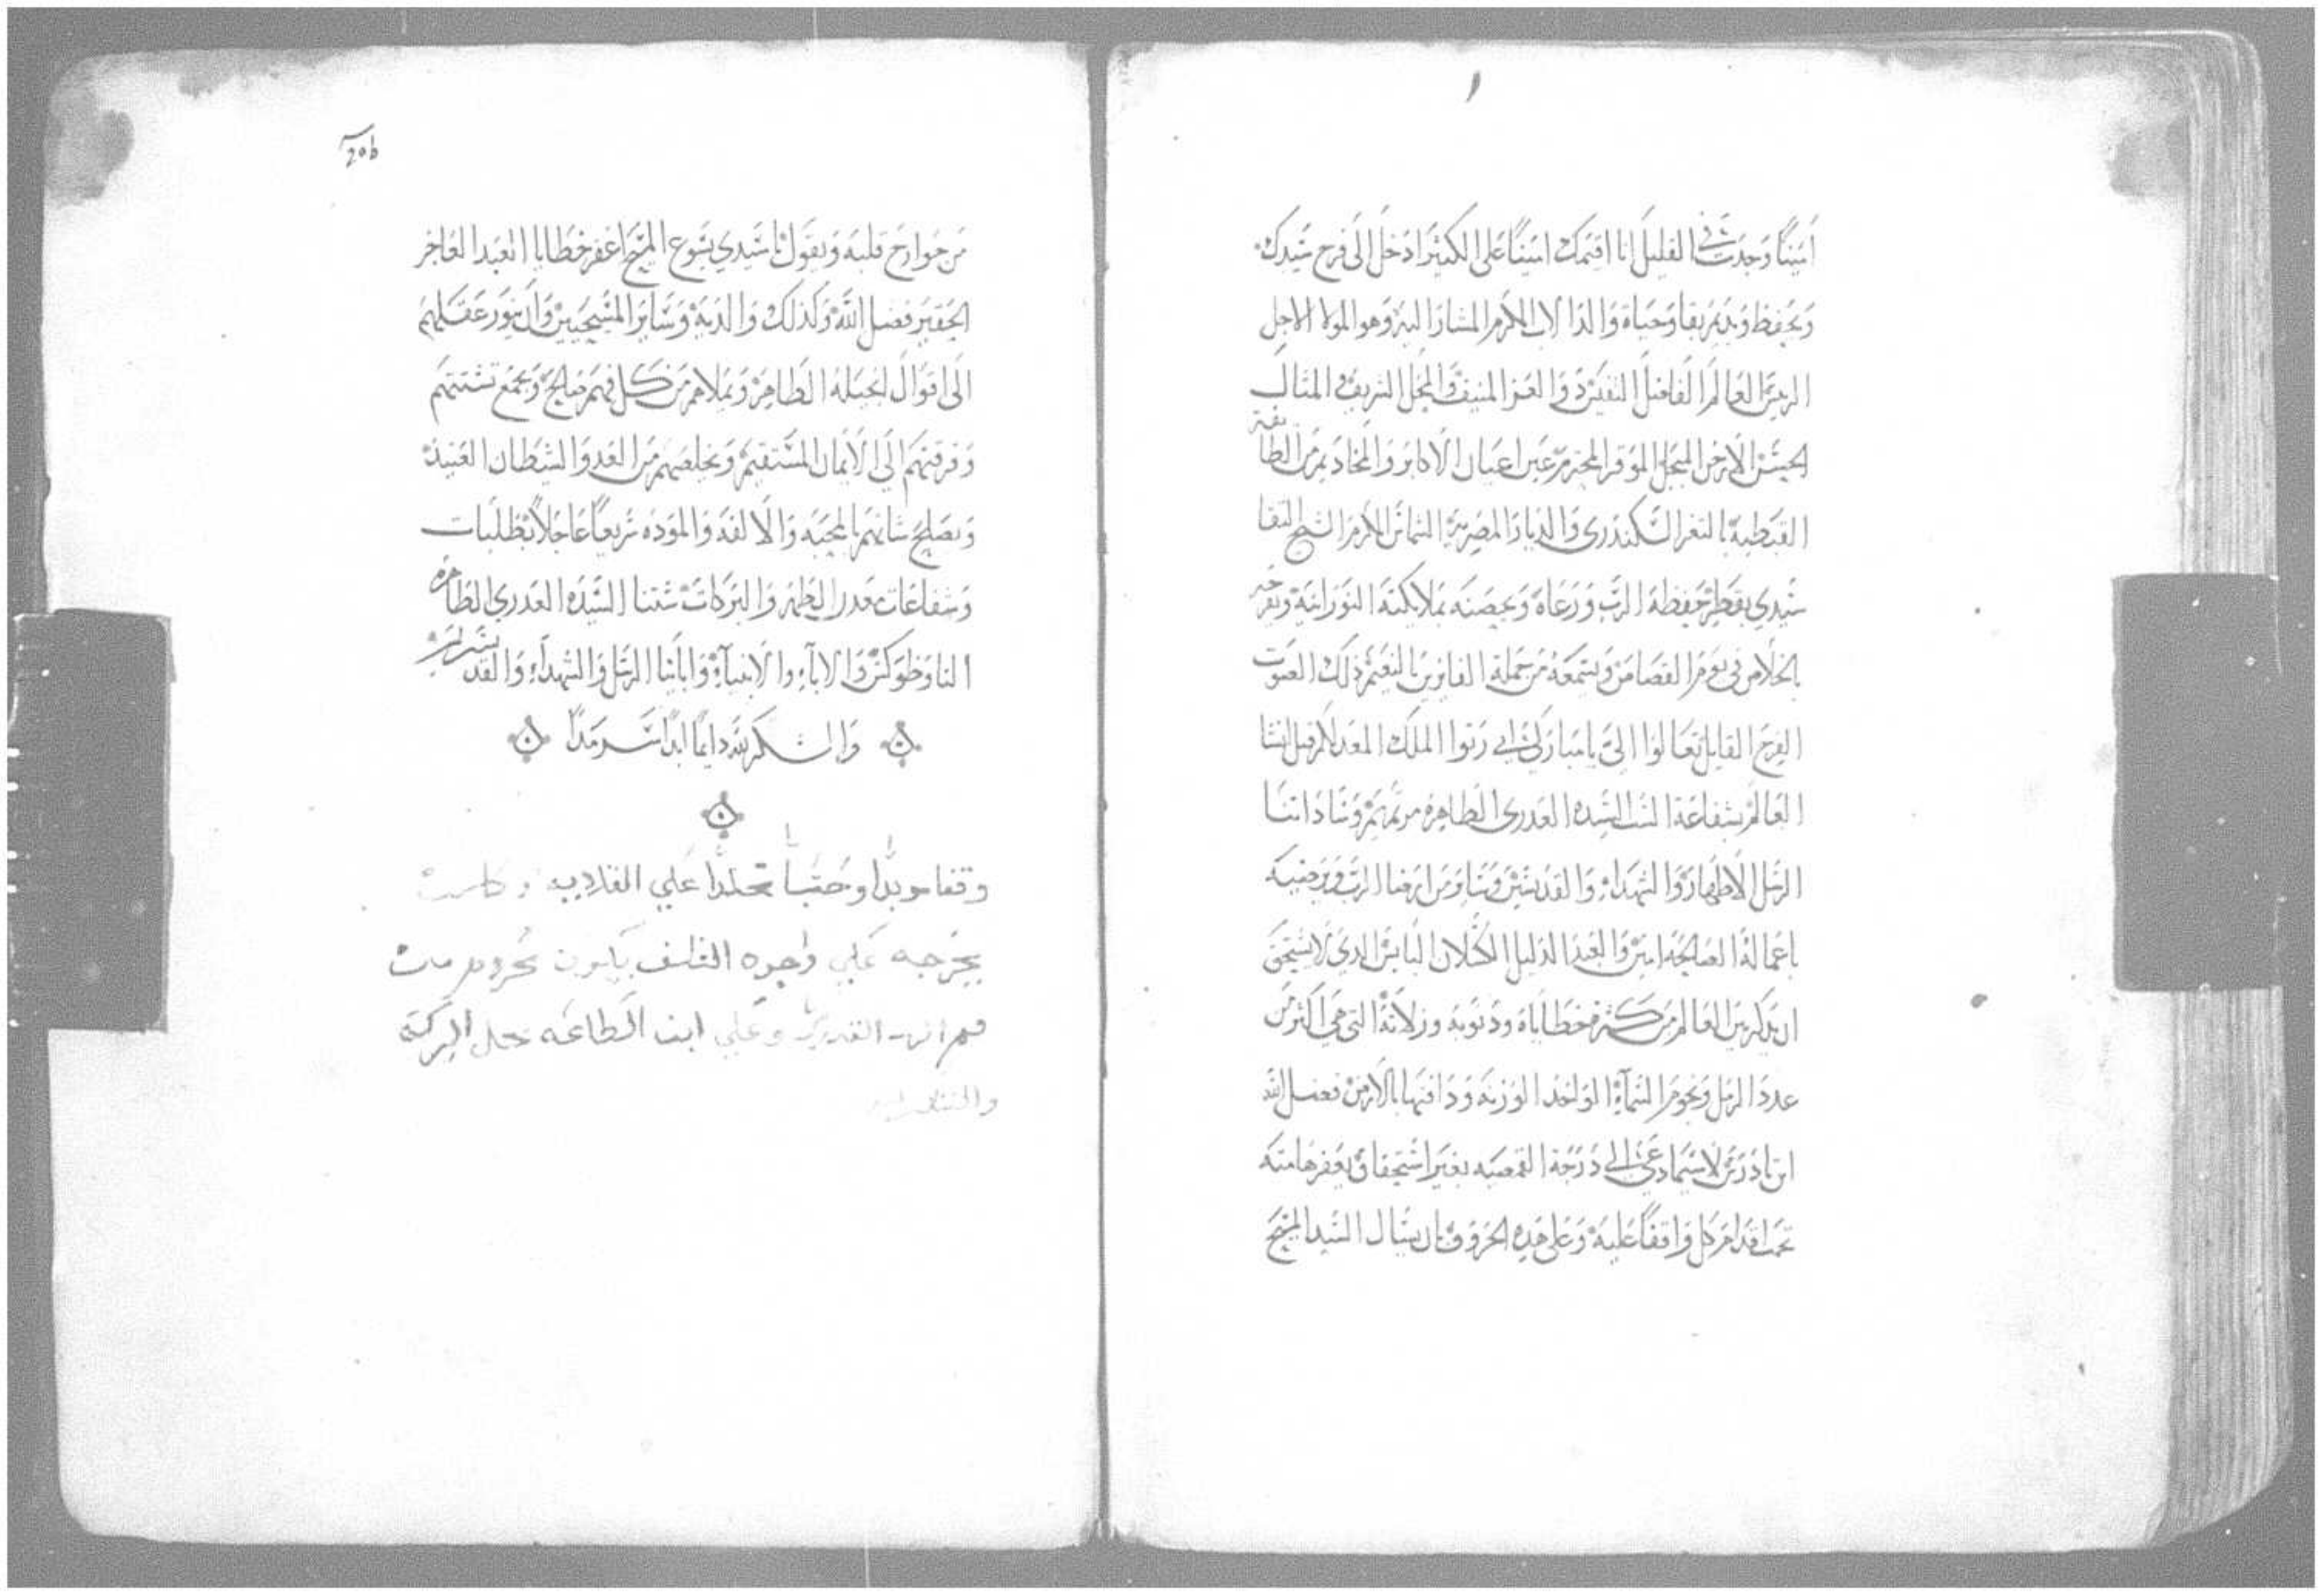 ١
امينًا وجدت في القليل انا اقيمك امينًا على الكثير ادخل الى فرح سيدك
ويحفظ ويديم بقا وحياة والدا الاب المكرم المشار اليه وهو المولا الاجل
الريس العالم الفاضل النفيس ذو العز المنيف والمجل الشريف المثال
الارخن المبجل الموقر المحترم عين اعيان الاكابر والمخاديم من الطايفة
القبطية بالثغر السكندرى والديار المصرية الشماس المكرم الشيخ
سيدي بقطر حفظه الرب ورعاه ويحصنه بملايكته النورانية ويفرحه
بالخلاص في يوم القصاص ويسمعه من جملة الفايزين بالنعيم ذلك الصوت
الفرح القايل تعالوا اليّ يا مباركي ابي رتوا الملك المعد لكم قبل انشا
العالم بشفاعة الست السيده العدرى الطاهره مرتمريم وساداتنا
الرسل الاطهار والشهداء والقديسين ومن ارضا الرب ويرضيه
باعماله الصالحه امين والعبد الدليل الكسلان البايس الدى لا يستحق
ان يدكر بين العالم من كثرة خطاياه ودنوبه وزلاته التى هي اكثر من
عدد الرمل ونجوم السماء الواخد الوزنه ودافنها بالارض فضل الله
ابن تادرس لاسيما دعي الى درجة القمصيه بغير استحقاق يعفر هامته
تحت اقدام كل واقفًا عليه وعلى هده الحروف بان يسال السيد المسيح
20b
من جوارح قلبه ويقول يا سيدي يسوع المسيح اغفر خطايا العبد العاجز
الحقير فضل الله وكذلك والديه وساير المسيحيين وان ينور عقلهم
الى اقوال انجيله الطاهر ويملاهم من كل فهم صالح ويجمع تشتتهم
وفرقتهم الي الايمان المستقيم ويخلصهم من العدو الشيطان العنيد
ويصلح شانهم بالمحبه والالفه والموده سريعًا عاجلاً بطلبات
وشفاعات معدن الطهر والبركات ستنا السيده العدرى الطاهره
التاوضوكس والاباء والانبياء وابأينا الرسل والشهداء والقديسين
والشكر لله دايمًا ابدًا سرمدًا
وقفا موبدًا وحبسًا مخلدًا علي القلايه
يخرجه علي واجوه التلف يكون محروم من
فم الرب وعلي ابن الطاعه تحل البركه